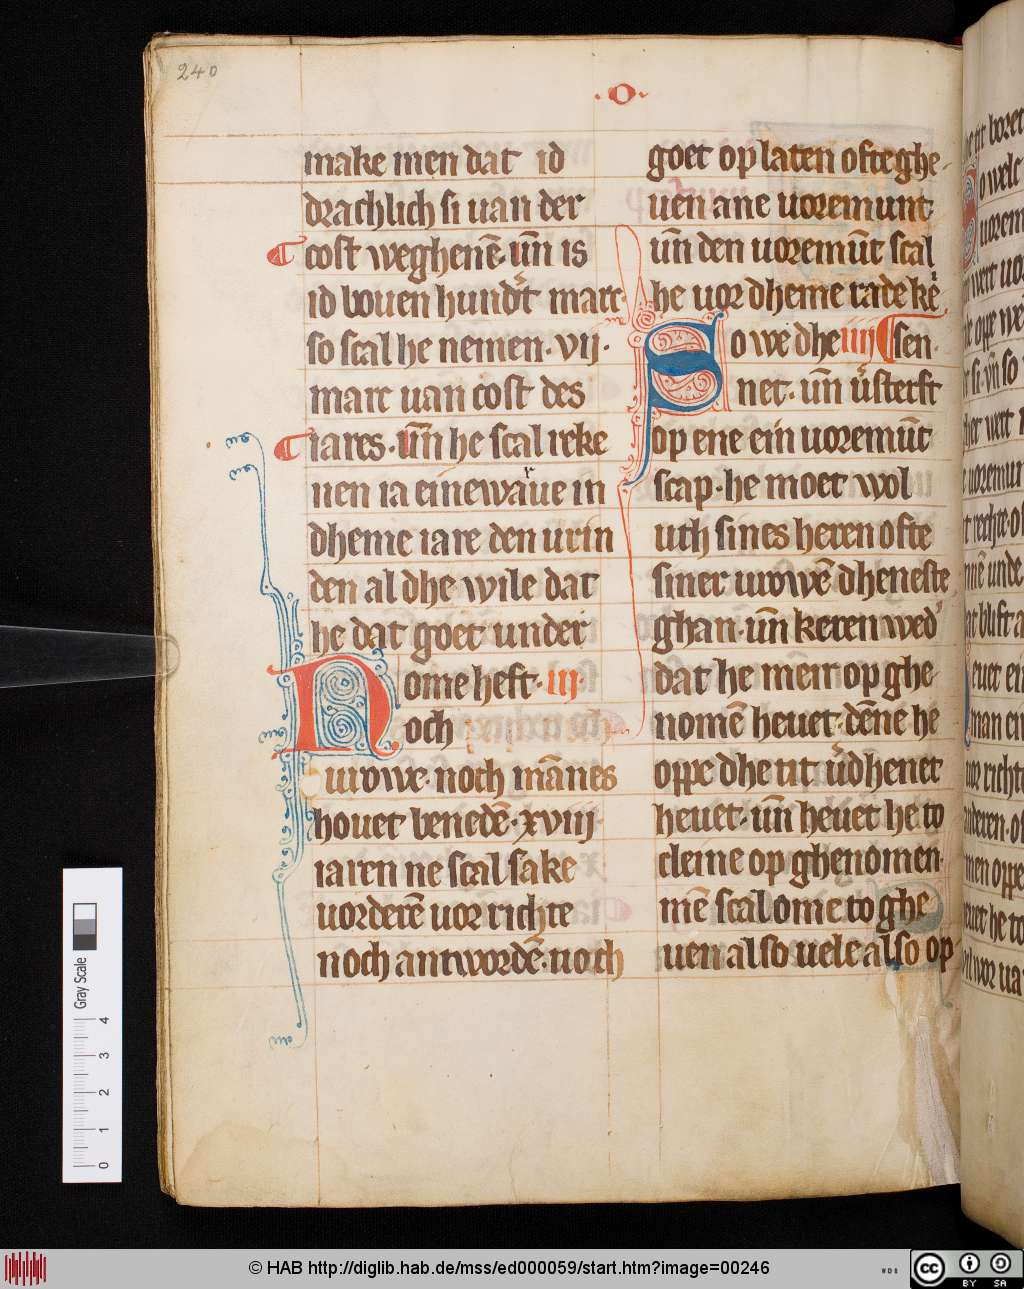 240
·O·
make men dat id
drachlich si uan der
cost weghenē· uñ is
id bouen hundt marc·
so scal he nemen· vij·
marc uan cost des
iares· uñ he scal reke
nen ia einewarue in
dheme iare den urin
den al dhe wile dat
he dat goet under
Nome heft· iij·
och
urowe· noch mānes
houet benedē· xviij
iaren ne scal sake
uorderē uor richte
noch antwordē· noch
goet op laten ofte ghe-
uen ane uoremunt·
uñ den uoremūt scal
he uor dheme rade kē
So we dhe iiij sen·
net· uñ ūsterft
op ene ein uoremūt
scap· he moet wol
uth sines heren ofte
siner urowē dheneste
ghan· uñ keren wed'
dat he men op ghe-
nomē heuet· dēne he
oppe dhe tit ūdhenet
heuet· uñ heuet he to
cleine op ghenomen·
mē scal ome to ghe
uen also uele also op-
Gray Scale
0 1 2 3 4
© HAB http://diglib.hab.de/mss/ed000059/start.htm?image=00246
WDB
CC BY SA